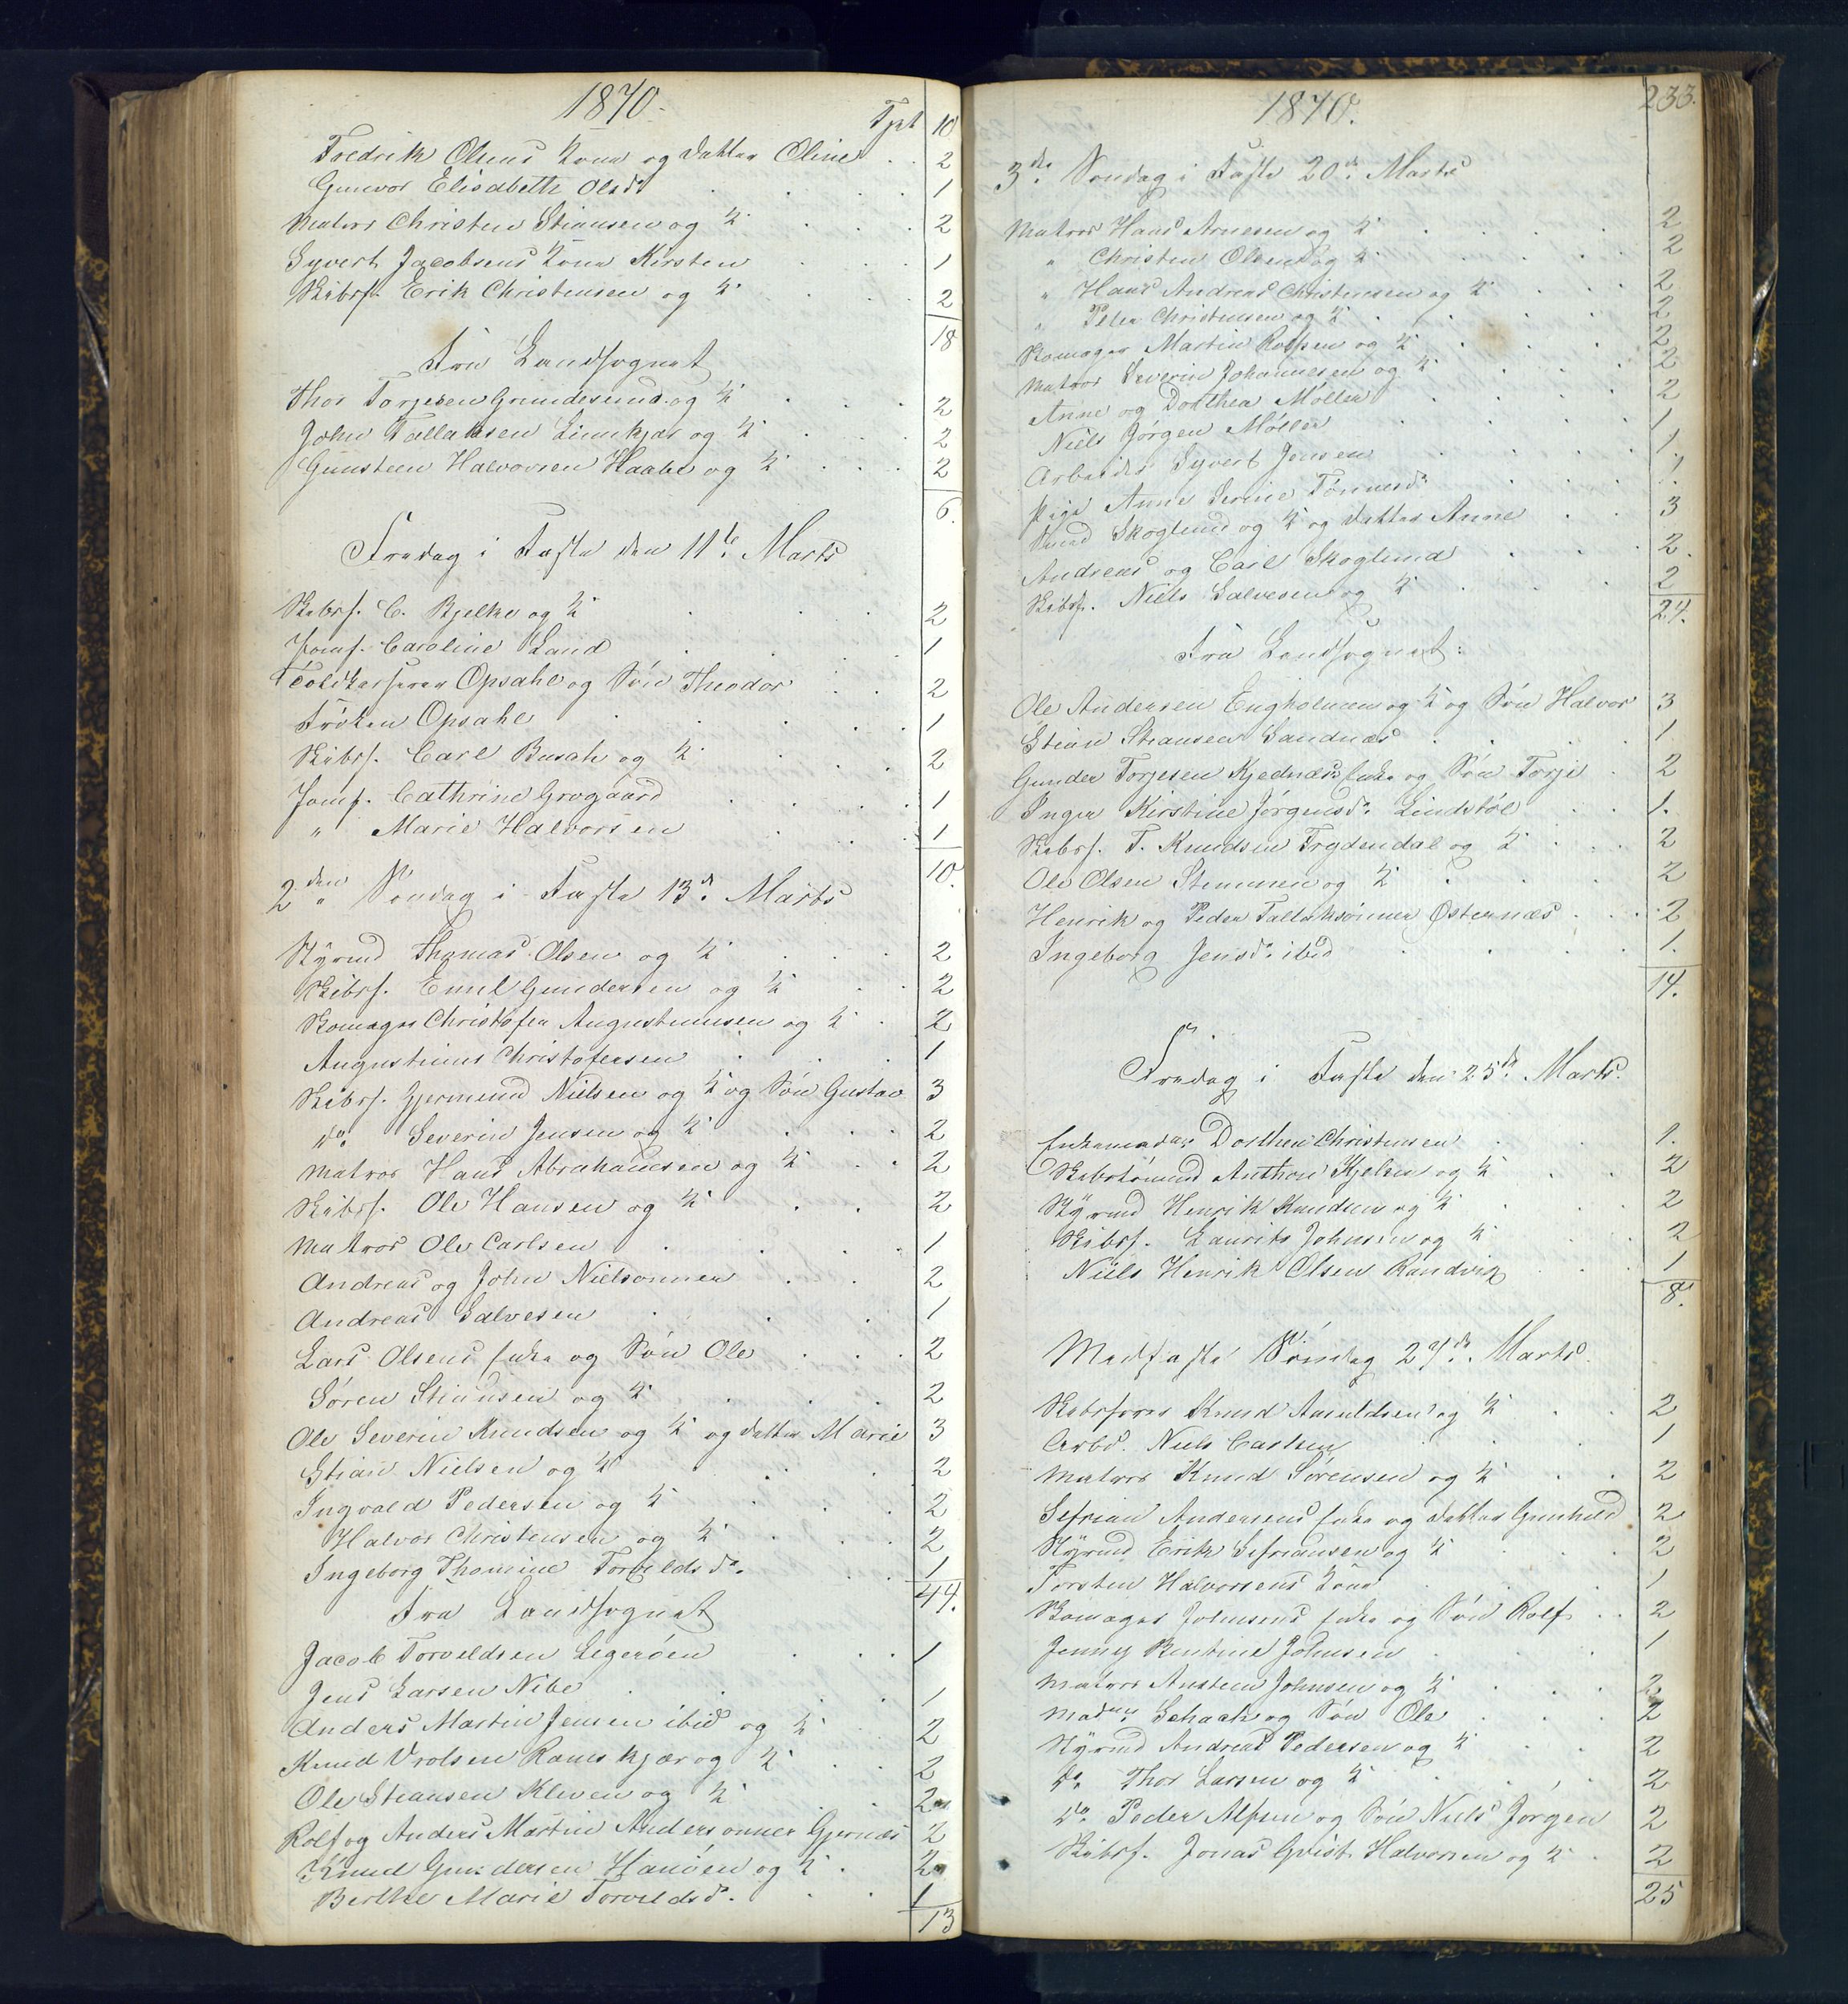 1870.
Tpt 10
Fredrik Olsens Kone og Datter Oline 2
Gunvor Elisabeth Olsdr 1
Matros Christen Stiansen og K. 2
Syvert Jacobsens Kone Kirsten 1
Skibsf. Erik Christensen og K. 2
18
Fra Landsognet
Thor Torjesen Grundesund og K. 2
John Tallaksen Limkjær og K. 2
Gunsteen Halvorsen Haabe og K. 2
6.
Fredag i Faste den 11te Marts
Skibsf. C. Bjelke og K. 2
Jomf. Caroline Lund 1
Toldkasserer Opsahl og Søn Theodor 2
Frøken Opsahl 1
Skibsf. Carl Busch og K. 2
Jomf. Cathrine Grogaard 1
" Marie Halvorsen 1
10.
2den Søndag i Faste 13de Marts
Styrmd Thomas Olsen og K. 2
Skibsf. Emil Gundersen og K. 2
Skomager Christofer Augustinusen og K. 2
Augustinus Christofersen 1
Skibsf. Gjermund Nielsen og K. og Søn Gustav 3
do. Severin Jensen og K. 2
Matros Hans Abrahamsen og K. 2
Skibsf. Ole Hansen og K. 2
Matros Ole Carlsen 1
Andreas og John Nielsønner 2
Andreas Salvesen 1
Lars Olsens Enke og Søn Ole 2
Søren Stiansen og K. 2
Ole Severin Knudsen og K. og Datter Marie 3
Stian Nielsen og K. 2
Ingvald Pedersen og K. 2
Halvor Christensen og K. 2
Ingeborg Thomine Torvildsdr. 1
44.
Fra Landsognet
Jacob Torveldsen Legerøen 1
Jens Larsen Nibe 1
Anders Martin Jensen ibid og K. 2
Knud Vrolsen Ramskjær og K. 2
Ole Stiansen Kleven og K. 2
Rolf og Anders Martin Andersønner Gjernæs 2
Knud Gundersen Hanøen og K. 2
Berthe Marie Torveldsdr. 1
13
1870.
233.
3die Søndag i Faste 20de Marts
Matros Hans Arnesen og K. 2
" Christen Olsen og K. 2
" Hans Andreas Christensen og K. 2
" Peter Christensen og K. 2
Skomager Martin Rolfsen og K. 2
Matros Severin Johannesen og K. 2
Anne og Dorthea Møller 2
Niels Jørgen Møller 1
Arbeider Syvert Jensen 1.
Pige Anne Serine Tønnesdr 1
Skoglund og K. og Datter Anne 3
Andreas og Carl Skoglund 2.
Skibsf. Niels Salvesen og K. 2
24.
Fra Landsognet:
Ole Andersen Engholmen og K. og Søn Halvor 3
Stian Stiansen Sandnæs 1
Gunder Torjesen Kjednæs Enke og Søn Torje 2
Inger Kirstine Jørgensdr. Lindstøl 1.
Skibsf. T. Knudsen Trydendal og K. 2
Ole Olsen Stemmen og K. 2
Henrik og Peder Tallaksønner Østernæs 2
Ingeborg Jensdr. ibid 1.
14.
Fredag i Faste den 25de Marts.
Enkemadam Dorthea Christensen 1.
Skibstømmd Anthon Kjelsen og K. 2
Styrmd Henrik Knudsen og K. 2
Skibsf. Laurits Johnsen og K. 2
Niels Henrik Olsen Randvig 1
8.
Midfaste Søndag 27de Marts.
Skibsfører Knud Asuldsen og K. 2
Arbd. Niels Carlsen 1
Matros Knud Sørensen og K. 2
Sefrian Andersens Enke og Datter Gunhild 2
Styrmd Erik Sefriansen og K. 2
Torsten Halvorsens Kone 1
Skomager Johnsens Enke og Søn Rolf 2
Jenny Bentine Johnsen 1
Matros Austein Johnsen og K. 2
Madme Schack og Søn Ole 2
Styrmd Andreas Pedersen og K. 2
do. Thor Larsen og K. 2
do. Peder Alfsen og Søn Niels Jørgen 2
Skibsf. Jonas Qvist Halvorsen og K. 2
25